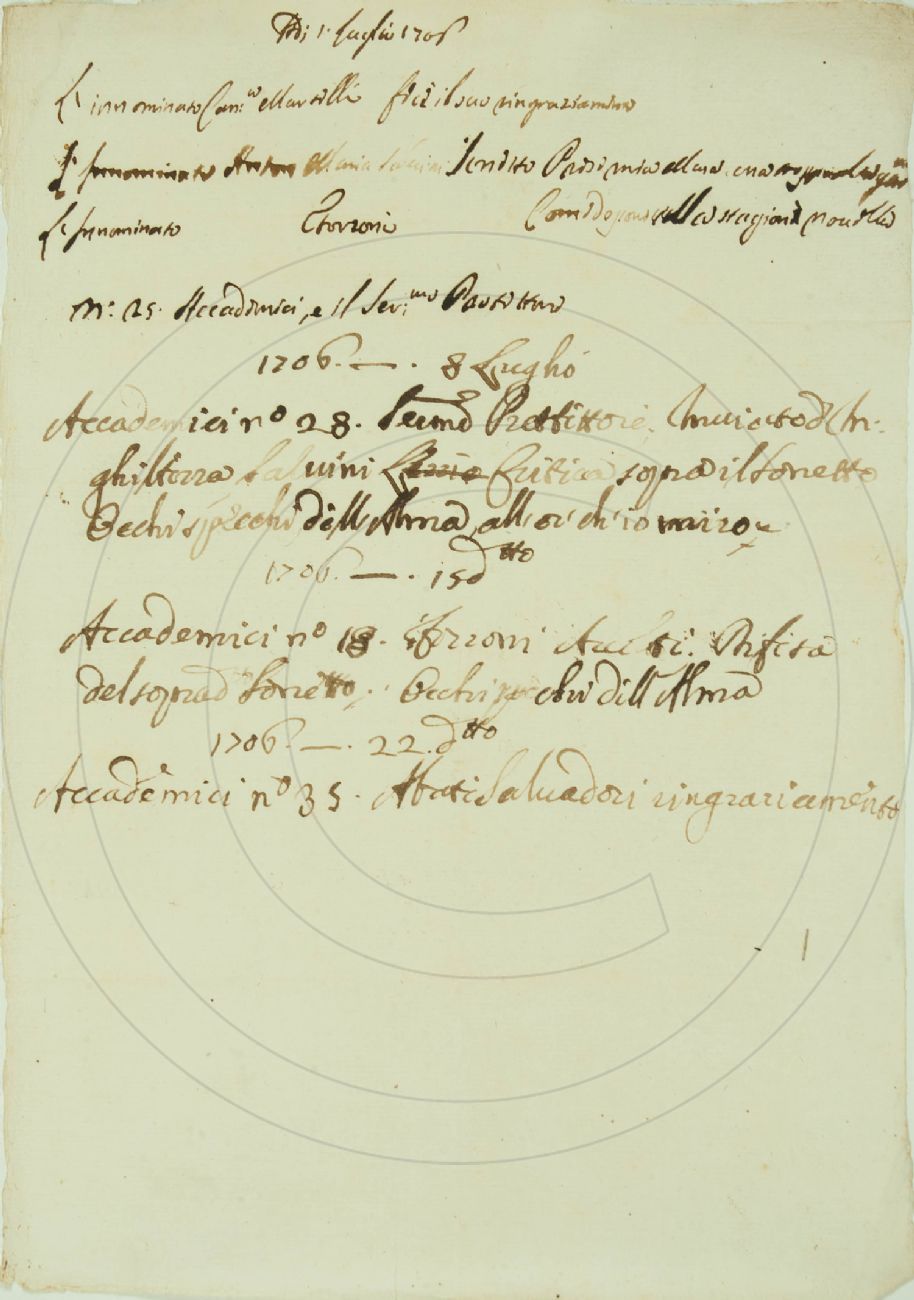 Adi 1 Luglio 1706
L'innominato Can.co Martelli fece il suo ringraziamento
L'Innominato Anton Maria Salvini
L'Innominato Forzoni della stagione novella
N.: 25. Accademici, e il Ser.mo Protettore
1706. — . 8 Luglio
Accademici nº 28. Protettore. Inviato d'In-
ghilterra Salvini Critica sopra il Sonetto
Occhi specchi dell'Alma, allor ch'io miro
1706. — . 15 dtto
Accademici nº 18. Forzoni Difesa
del soprad.º Sonetto. Occhi specchi dell'Alma
1706. — . 22. dtto
Accademici nº 35. Abate Salvadori ringraziamento